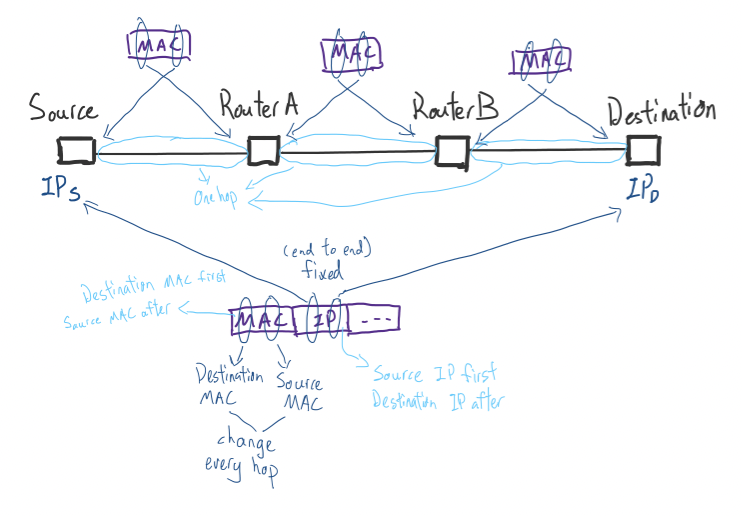 MAC
MAC
MAC
Source
Router A
Router B
Destination
IPS
One hop
IPD
(end to end)
fixed
Destination MAC first
Source MAC after
MAC IP ---
Destination
MAC
Source
MAC
Source IP first
Destination IP after
change
every hop